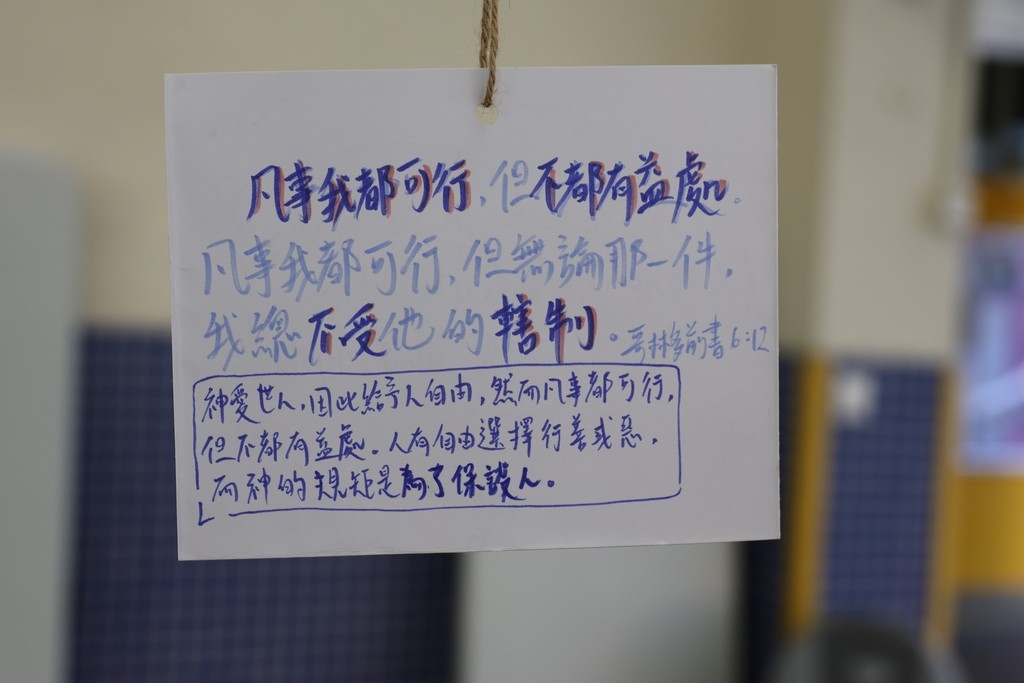 凡事我都可行,但不都有益處。
凡事我都可行,但無論那一件,
我總不受他的轄制。哥林多前書6:12
神愛世人,因此給予人自由,然而凡事都可行,
但不都有益處。人有自由選擇行善或惡,
而神的規矩是為了保護人。